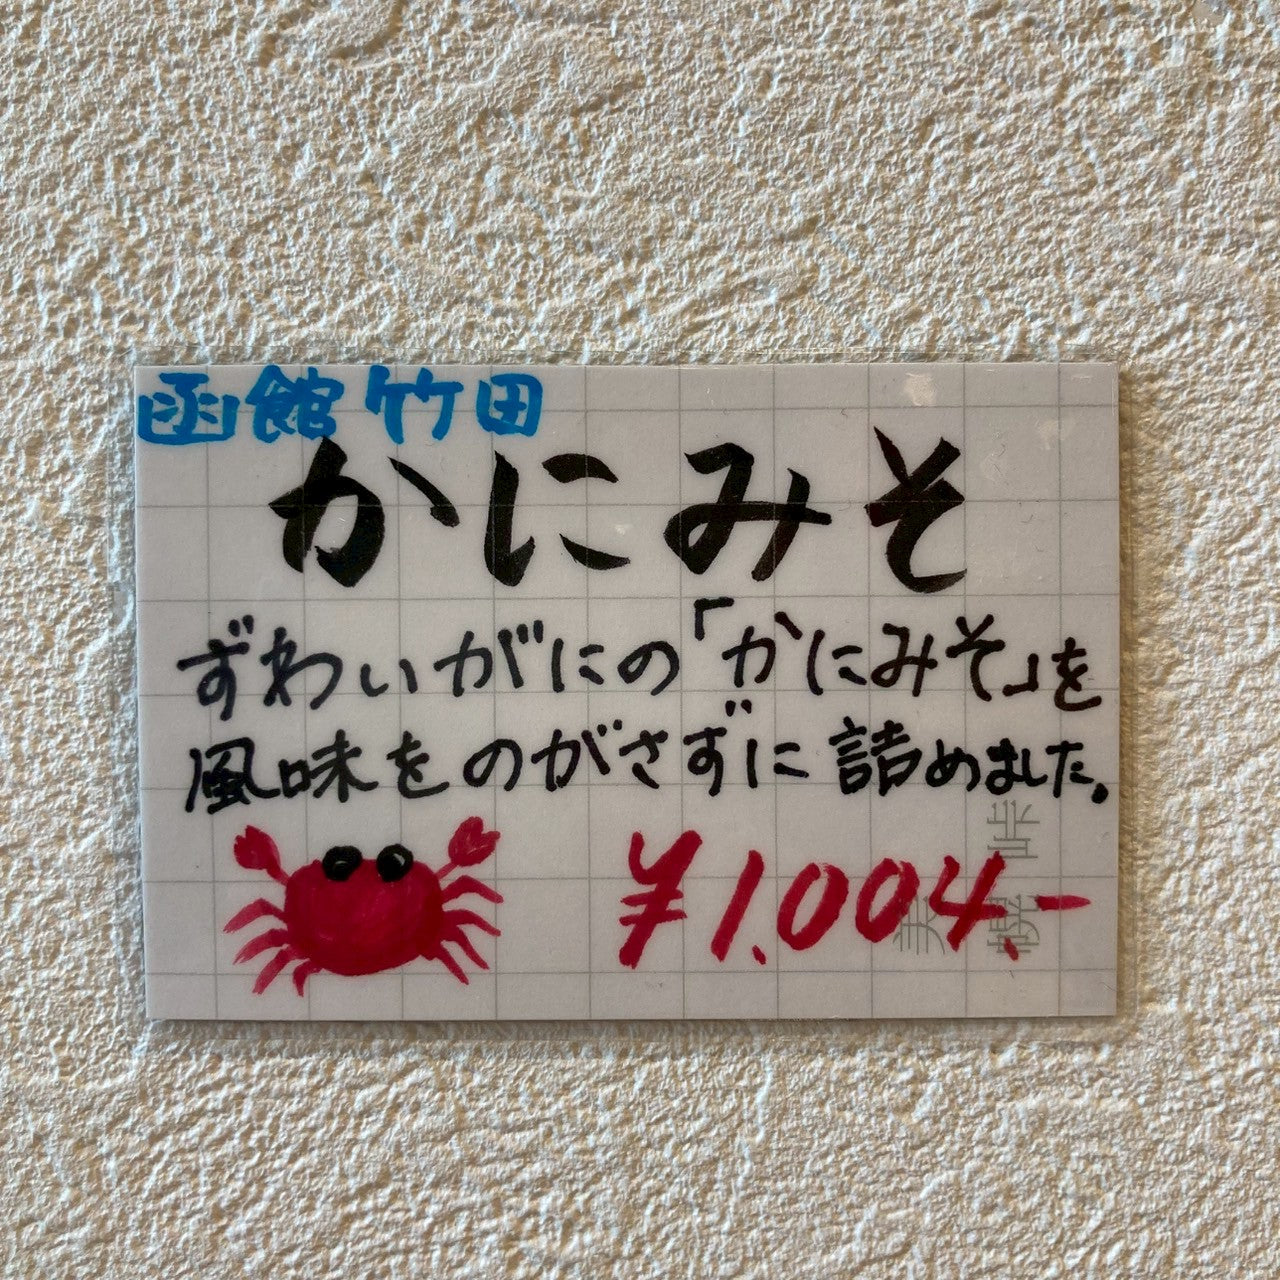 函館竹田
かにみそ
ずわいがにの「かにみそ」を
風味をのがさずに詰めました。
¥1.004.-